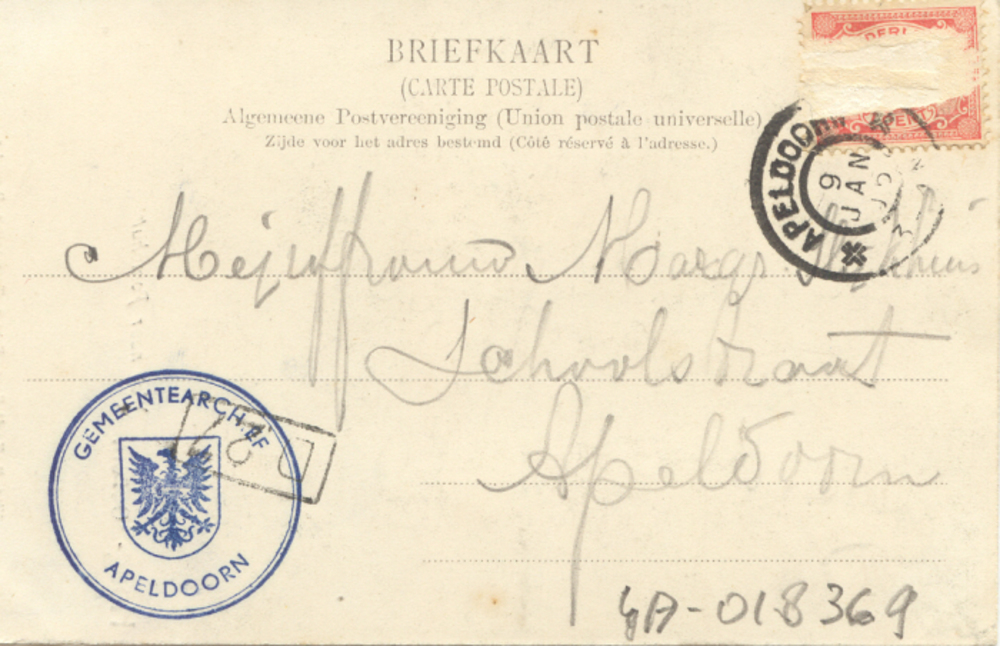 BRIEFKAART
(CARTE POSTALE)
Algemeene Postvereeniging (Union postale universelle)
Zijde voor het adres bestemd (Côté réservé à l'adresse.)
APELDOORN
9
JAN
Mejuffrouw Margr
Schoolstraat
Apeldoorn
GEMEENTEARCHIEF
APELDOORN
GA-018369